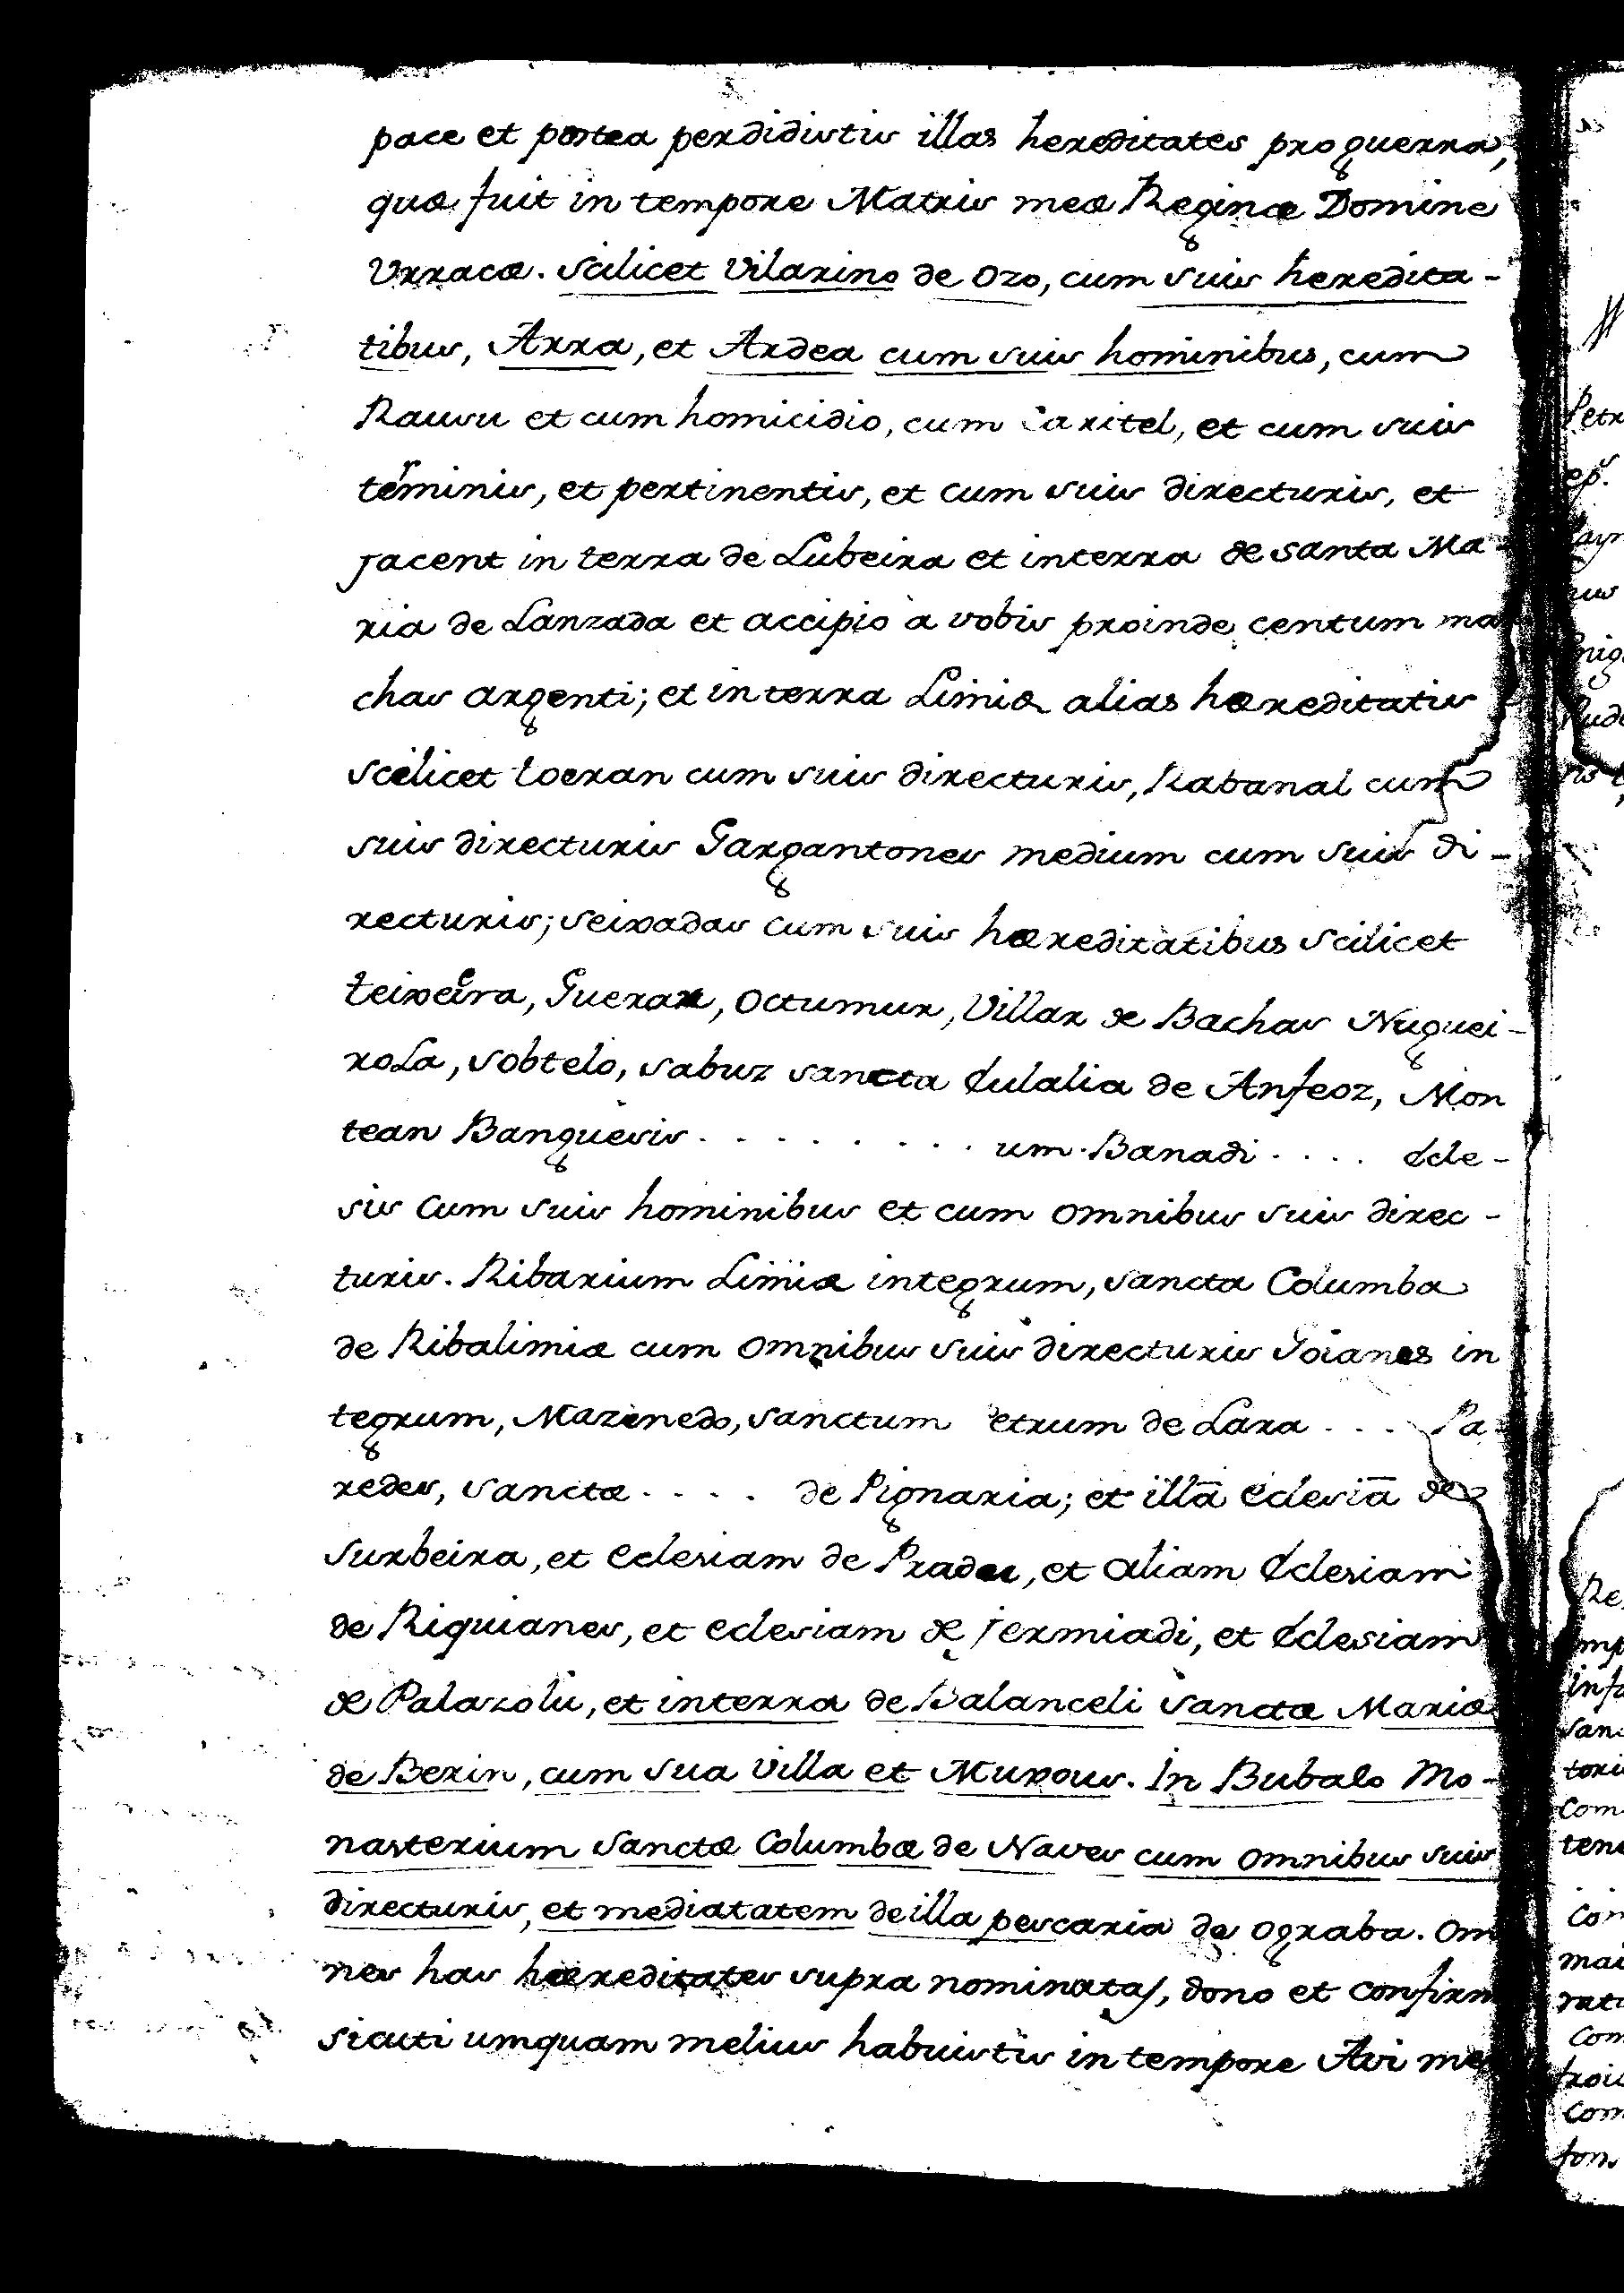 pace et postea perdidistis illas hereditates pro guerra,
quæ fuit in tempore Matris meæ Reginæ Domine
Urracæ. Scilicet Vilarino de Ozo, cum suis heredita-
tibus, Arra, et Ardea cum suis hominibus, cum
Rausu et cum homicidio, cum Caritel, et cum suis
terminis, et pertinentis, et cum suis directuris, et
jacent in terra de Lubeira et interra de Santa Ma-
ria de Lanzada et accipio à vobis proinde centum ma
chas argenti; et in terra Limiæ alias hæreditatis
scilicet toeran cum suis directuris, Rabanal cum
suis directuris Gargantones medium cum suis di-
recturis; seixadas cum suis hæreditatibus scilicet
teixeira, Guerax, Octumur, Villar de Bachas Nuguei-
rola, sobtelo, sabuz sancta Eulalia de Anfeoz, Mon
tean Banguesis . . . . . . . . . um. Banadi . . . . Ecle-
sis cum suis hominibus et cum omnibus suis direc-
turis. Ribarium Limiæ integrum, sancta Columba
de Ribalimiæ cum omnibus suis directuris Goianes in
tegrum, Mazenedo, sanctum etrum de Lara . . . Pa-
redes, sanctæ . . . . de Pignaria; et illā eclesiā de
Surbeira, et eclesiam de Prades, et aliam Eclesiam
de Riquianes, et eclesiam de jermiadi, et Eclesiam
de Palazoli, et interra de Balanceli Sanctæ Mariæ
de Berin, cum sua Villa et Muxous. In Bubalo Mo-
nasterium Sanctæ Columbæ de Naves cum omnibus suis
directuris, et mediatatem de illa pescaria de Ograba. Om
nes has hæreditates supra nominatas, dono et confirm
sicuti umquam melius habuistis in tempore Avi me